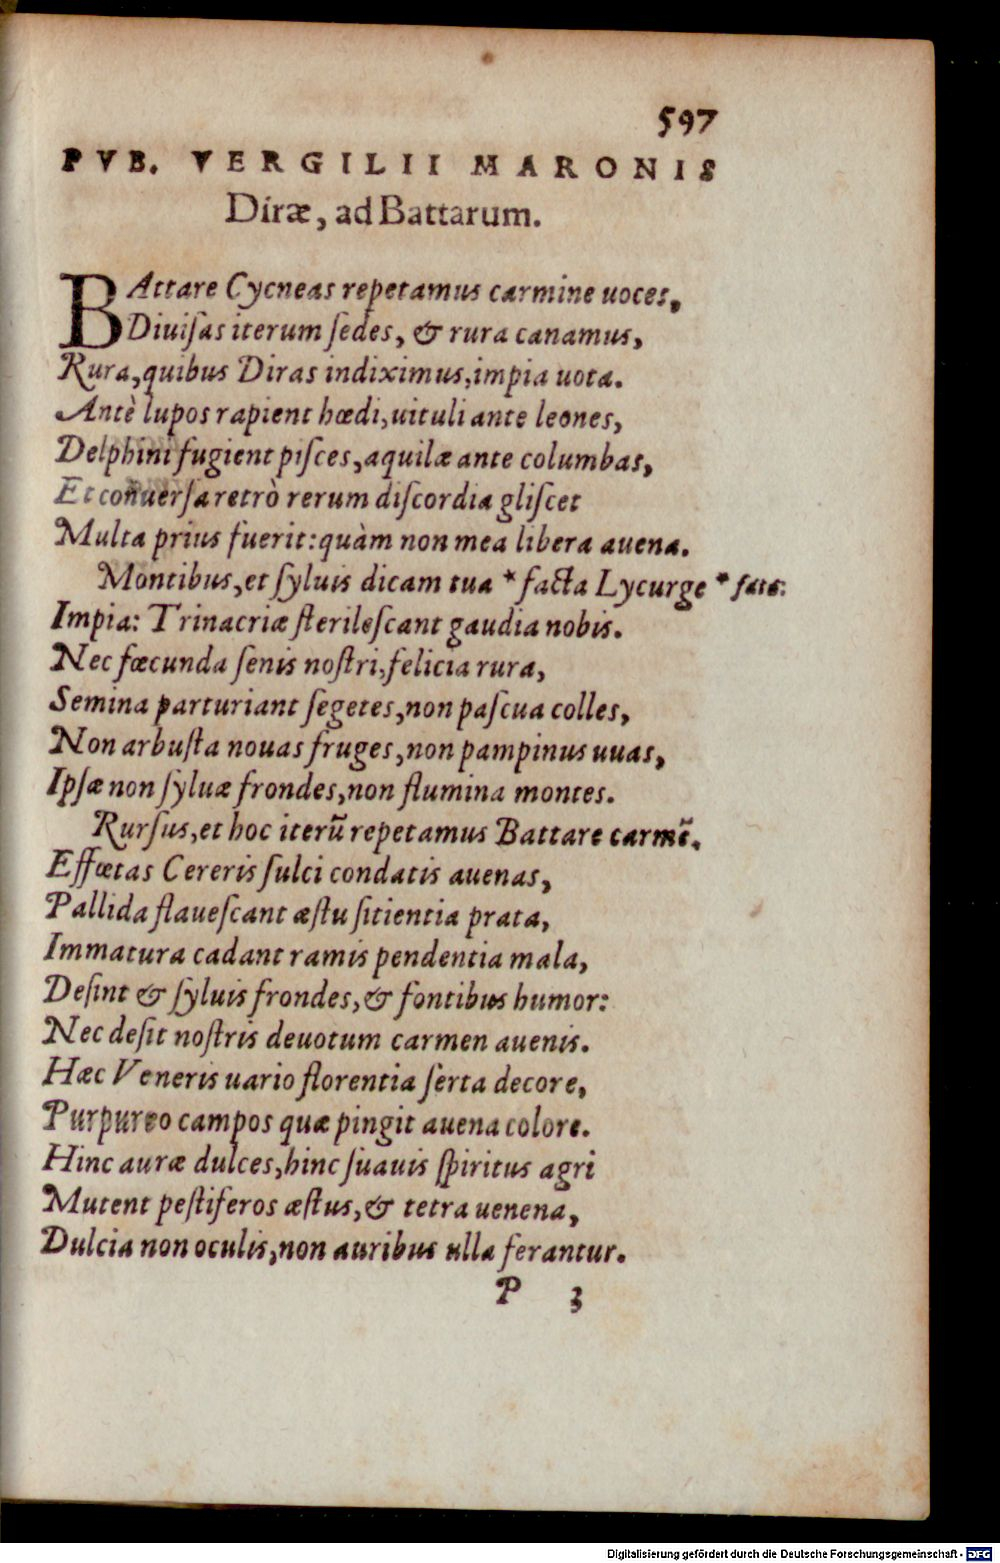 597
PVB. VERGILII MARONIS
Diræ, ad Battarum.
BAttare Cycneas repetamus carmine uoces,
Diuiſas iterum ſedes, & rura canamus,
Rura, quibus Diras indiximus, impia uota.
Antè lupos rapient hœdi, uituli ante leones,
Delphini fugient piſces, aquilæ ante columbas,
Et conuerſa retrò rerum diſcordia gliſcet
Multa prius fuerit: quàm non mea libera auena.
Montibus, et ſyluis dicam tua * facta Lycurge * ſata:
Impia: Trinacriæ ſterileſcant gaudia nobis.
Nec fœcunda ſenis noſtri, felicia rura,
Semina parturiant ſegetes, non paſcua colles,
Non arbuſta nouas fruges, non pampinus uuas,
Ipſæ non ſyluæ frondes, non flumina montes.
Rurſus, et hoc iterũ repetamus Battare carmẽ.
Effœtas Cereris ſulci condatis auenas,
Pallida flaueſcant æſtu ſitientia prata,
Immatura cadant ramis pendentia mala,
Deſint & ſyluis frondes, & fontibus humor:
Nec deſit noſtris deuotum carmen auenis.
Hæc Veneris uario florentia ſerta decore,
Purpureo campos quæ pingit auena colore.
Hinc auræ dulces, hinc ſuauis ſpiritus agri
Mutent peſtiferos æſtus, & tetra uenena,
Dulcia non oculis, non auribus ulla ferantur.
P 3
Digitalisierung gefördert durch die Deutsche Forschungsgemeinschaft - DFG